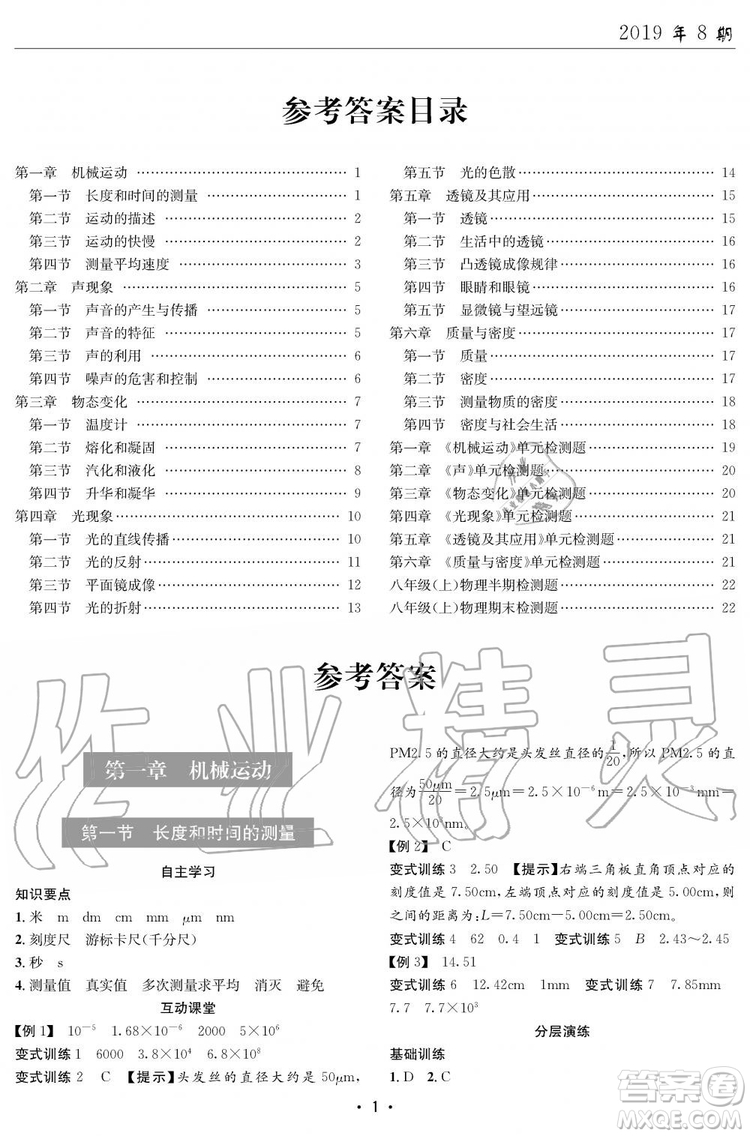 2019 年 8 期
参考答案目录
第一章 机械运动 …… 1
第一节 长度和时间的测量 …… 1
第二节 运动的描述 …… 2
第三节 运动的快慢 …… 2
第四节 测量平均速度 …… 3
第二章 声现象 …… 5
第一节 声音的产生与传播 …… 5
第二节 声音的特征 …… 5
第三节 声的利用 …… 6
第四节 噪声的危害和控制 …… 6
第三章 物态变化 …… 7
第一节 温度计 …… 7
第二节 熔化和凝固 …… 7
第三节 汽化和液化 …… 8
第四节 升华和凝华 …… 9
第四章 光现象 …… 10
第一节 光的直线传播 …… 10
第二节 光的反射 …… 11
第三节 平面镜成像 …… 12
第四节 光的折射 …… 13
第五节 光的色散 …… 14
第五章 透镜及其应用 …… 15
第一节 透镜 …… 15
第二节 生活中的透镜 …… 16
第三节 凸透镜成像规律 …… 16
第四节 眼睛和眼镜 …… 16
第五节 显微镜与望远镜 …… 16
第六章 质量与密度 …… 17
第一节 质量 …… 17
第二节 密度 …… 17
第三节 测量物质的密度 …… 18
第四节 密度与社会生活 …… 18
第一章《机械运动》单元检测题 …… 19
第二章《声》单元检测题 …… 20
第三章《物态变化》单元检测题 …… 20
第四章《光现象》单元检测题 …… 21
第五章《透镜及其应用》单元检测题 …… 21
第六章《质量与密度》单元检测题 …… 22
八年级(上)物理半期检测题 …… 22
八年级(上)物理期末检测题 …… 22
参考答案
第一章 机械运动
第一节 长度和时间的测量
自主学习
知识要点
1. 米 m dm cm mm μm nm
2. 刻度尺 游标卡尺(千分尺)
3. 秒 s
4. 测量值 真实值 多次测量求平均 消灭 避免
互动课堂
【例 1】 10⁻⁵ 1.68×10⁻⁶ 2000 5×10⁻⁶
变式训练 1 6000 3.8×10⁻⁴ 3.8×10⁵
变式训练 2 C 【提示】头发丝的直径大约是 50μm,
PM2.5 的直径大约是头发丝直径的1/20,所以 PM2.5 的直
径为50μm/20=2.5μm=2.5×10⁻⁶m=2.5×10⁻³mm=
2.5×10³nm。
【例 2】 C
变式训练 3 2.50 【提示】右端三角板直角顶点对应的
刻度值是 7.50cm,左端顶点对应的刻度值是 5.00cm,则
之间的距离为:L=7.50cm-5.00cm=2.50cm。
变式训练 4 62 0.4 1 变式训练 5 B 2.43~2.45
【例 3】 14.51
变式训练 6 12.42cm 1mm 变式训练 7 7.85mm
7.7 7.7×10³
分层演练
基础训练
1. D 2. C
· 1 ·
作业精灵
答案圈
MXQE.COM